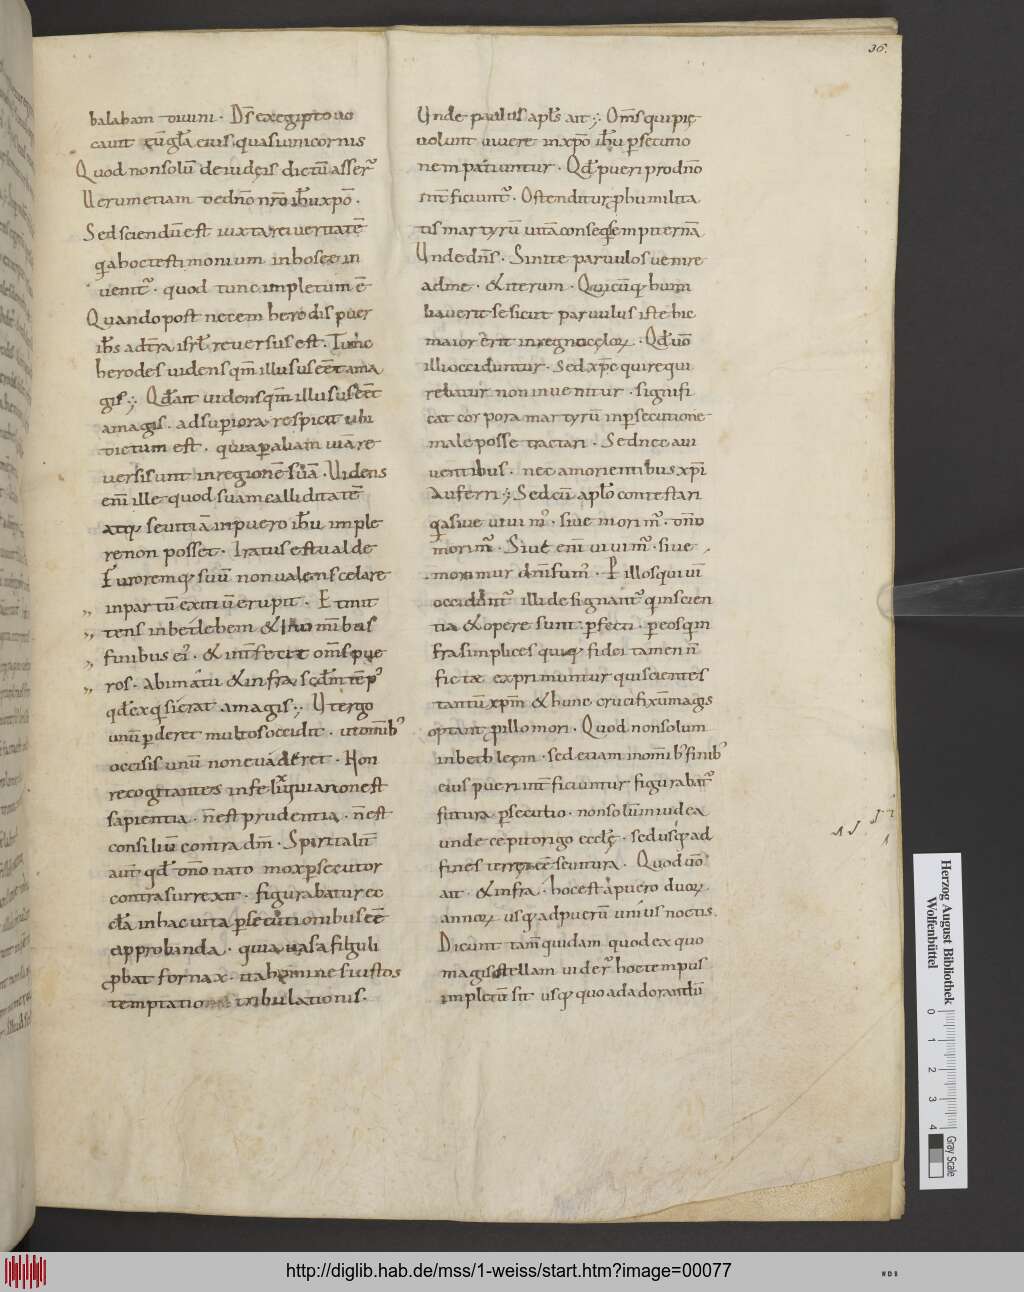 36.
balabam diuini · Ds̄ ex egipto uo
cauit eū gl̄a eius quasi unicornis
Quod non solū de iudęis dictū asser̄
Uerum etiam de dn̄o nr̄o ih̄u xpō ·
Sed sciendū est iuxta rei ueritatē
q̄a hoc testimonium in hosee in
uenit̄ · quod tunc impletum ē
Quando post necem herodis puer
ih̄s ad tr̄a isrl̄ reuersus est · Tunc
herodes uidens qm̄ illusus eēt a ma
gis ; Qd̄ ait uidens qm̄ illusus eēt
a magis · ad superiora respicit ubi
dictum est · quia p aliam uiā re
uersi sunt in regionē suā · Uidens
eni̅ ille quod suam calliditatē
atq; seuitiā in puero ih̄u imple
re non posset · Iratus est ualde
Furoremq; suū non ualens celare
in partū exitiū erupit · Et mit
tens in betlehem & in omnibus
finibus ei᾽ · & interfecit om̄s pue
ros · a bimatu & infra scd̄m temp᾽
qd̄ exq sierat a magis ; U tergo
unū pderet multos occidit · ut omib᾽
occisis unū non euaderet · Non
recogitantes infelix quia non est
sapientia · n̄ est prudentia · n̄ est
consiliū contra dm̄ · Spiritalit̄
aut̄ qd̄ dn̄o nato mox psecutor
contra surrexit · figurabatur ec
cl̄a in hac uita psecutionibus eē
approbanda · quia uasa figuli
pbat fornax · ita homines iustos
temptatio tribulationis ·
Unde paulus apls̄ ait ; Om̄s qui pię
uolunt uiuere in xpō ih̄u psecutio
nem patiuntur · Qd̄ pueri pro dn̄o
int̄ficiunt̄ · Ostenditur p humilita
tis martyrū uitā conseq sempiternā
Unde dn̄s · Sinite paruulos uenire
ad me · & iterum · Quicūq; humi
liauerit se sicut paruulus iste hic
maior erit in regno cęloꝝ · Qd̄ uō
illi occiduntur · sed xpc̄ qui requi
rebatur non inuenitur · signifi
cat corpora martyrū in psecutione
male posse tractari · Sed nec a ui
uentibus · nec a morientibus xpi̅
auferri ; Sed cū aplō contestari
q̄a siue uiuim᾽ · siue morim᾽ · dn̄o
morim᾽ · Siue eni̅ uiuim᾽ · siue
morimur dn̄i sum᾽ · P illos qui ui̅
occidunt̄ illi designant̄ q in scien
tia & opere sunt pfecti · p eos q in
fra simplices quiq; fidei tamen n̄
fictæ exprimuntur qui scientes
tantū xpm̄ & hunc crucifixū magis
optant p illo mori · Quod non solum
in bethleęm · sed etiam in omib᾽ finib᾽
eius pueri int̄ficiuntur figurabat̄
futura psecutio · non solū in iudea
unde cepit origo eccl̄ę · sed usq; ad
fines terrę eē seuitura · Quod uō
ait · & infra · hoc est a puero duoꝝ
annoꝝ usq; ad puerū unius noctis ·
Dicunt tam̄ quidam quod ex quo
magis stellam uider̄ hoc tempus
impletū sit usq; quo ad adorandū
Herzog August Bibliothek
Wolfenbüttel
0 1 2 3 4
Gray Scale
http://diglib.hab.de/mss/1-weiss/start.htm?image=00077